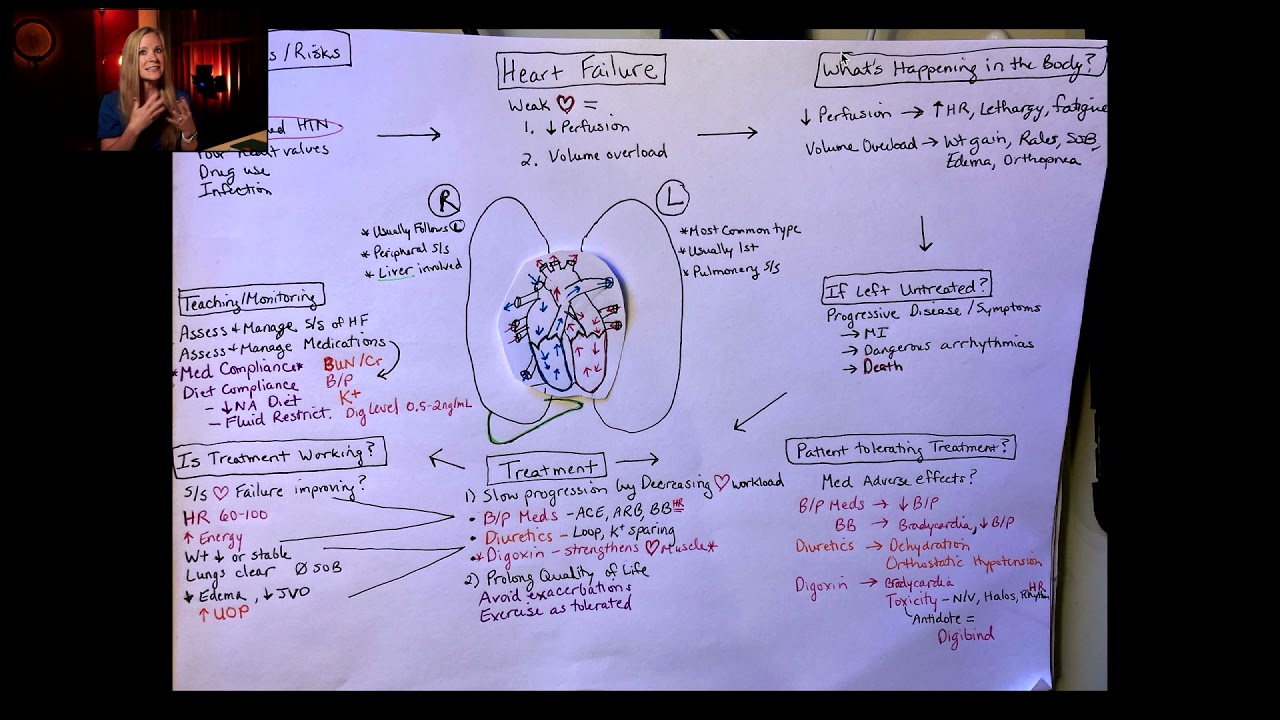 s/Risks
HTN
Poor Heart valves
Drug use
Infection
Heart Failure
Weak ♡ =
1. ↓ Perfusion
2. Volume overload
What's Happening in the Body?
↓ Perfusion → ↑ HR, Lethargy, fatigue
Volume Overload → Wt gain, Rales, SOB,
Edema, Orthopnea
R
* Usually Follows L
* Peripheral S/s
* Liver involved
L
* Most Common type
* Usually 1st
* Pulmonary S/s
If Left Untreated?
Progressive Disease / Symptoms
→ MI
→ Dangerous arrhythmias
→ Death
Teaching/Monitoring
Assess & Manage S/s of HF
Assess & Manage Medications
*Med Compliance* BUN/Cr
Diet Compliance B/P
- ↓NA Diet K+
- Fluid Restrict. Dig Level 0.5-2ng/mL
Is Treatment Working?
S/s ♡ Failure improving?
HR 60-100
↑ Energy
Wt ↓ or stable
Lungs clear Ø SOB
↓ Edema, ↓ JVD
↑ UOP
Treatment
1) Slow progression by Decreasing ♡ workload
• B/P Meds - ACE, ARB, BB HR
• Diuretics - Loop, K+ sparing
• *Digoxin - strengthens ♡ Muscle*
2) Prolong Quality of Life
Avoid exacerbations
Exercise as tolerated
Patient tolerating Treatment?
Med Adverse effects?
B/P Meds → ↓ B/P
BB → Bradycardia, ↓ B/P
Diuretics → Dehydration
Orthostatic Hypotension
Digoxin → Bradycardia
Toxicity - N/V, Halos, HR Rhythm
Antidote =
Digibind